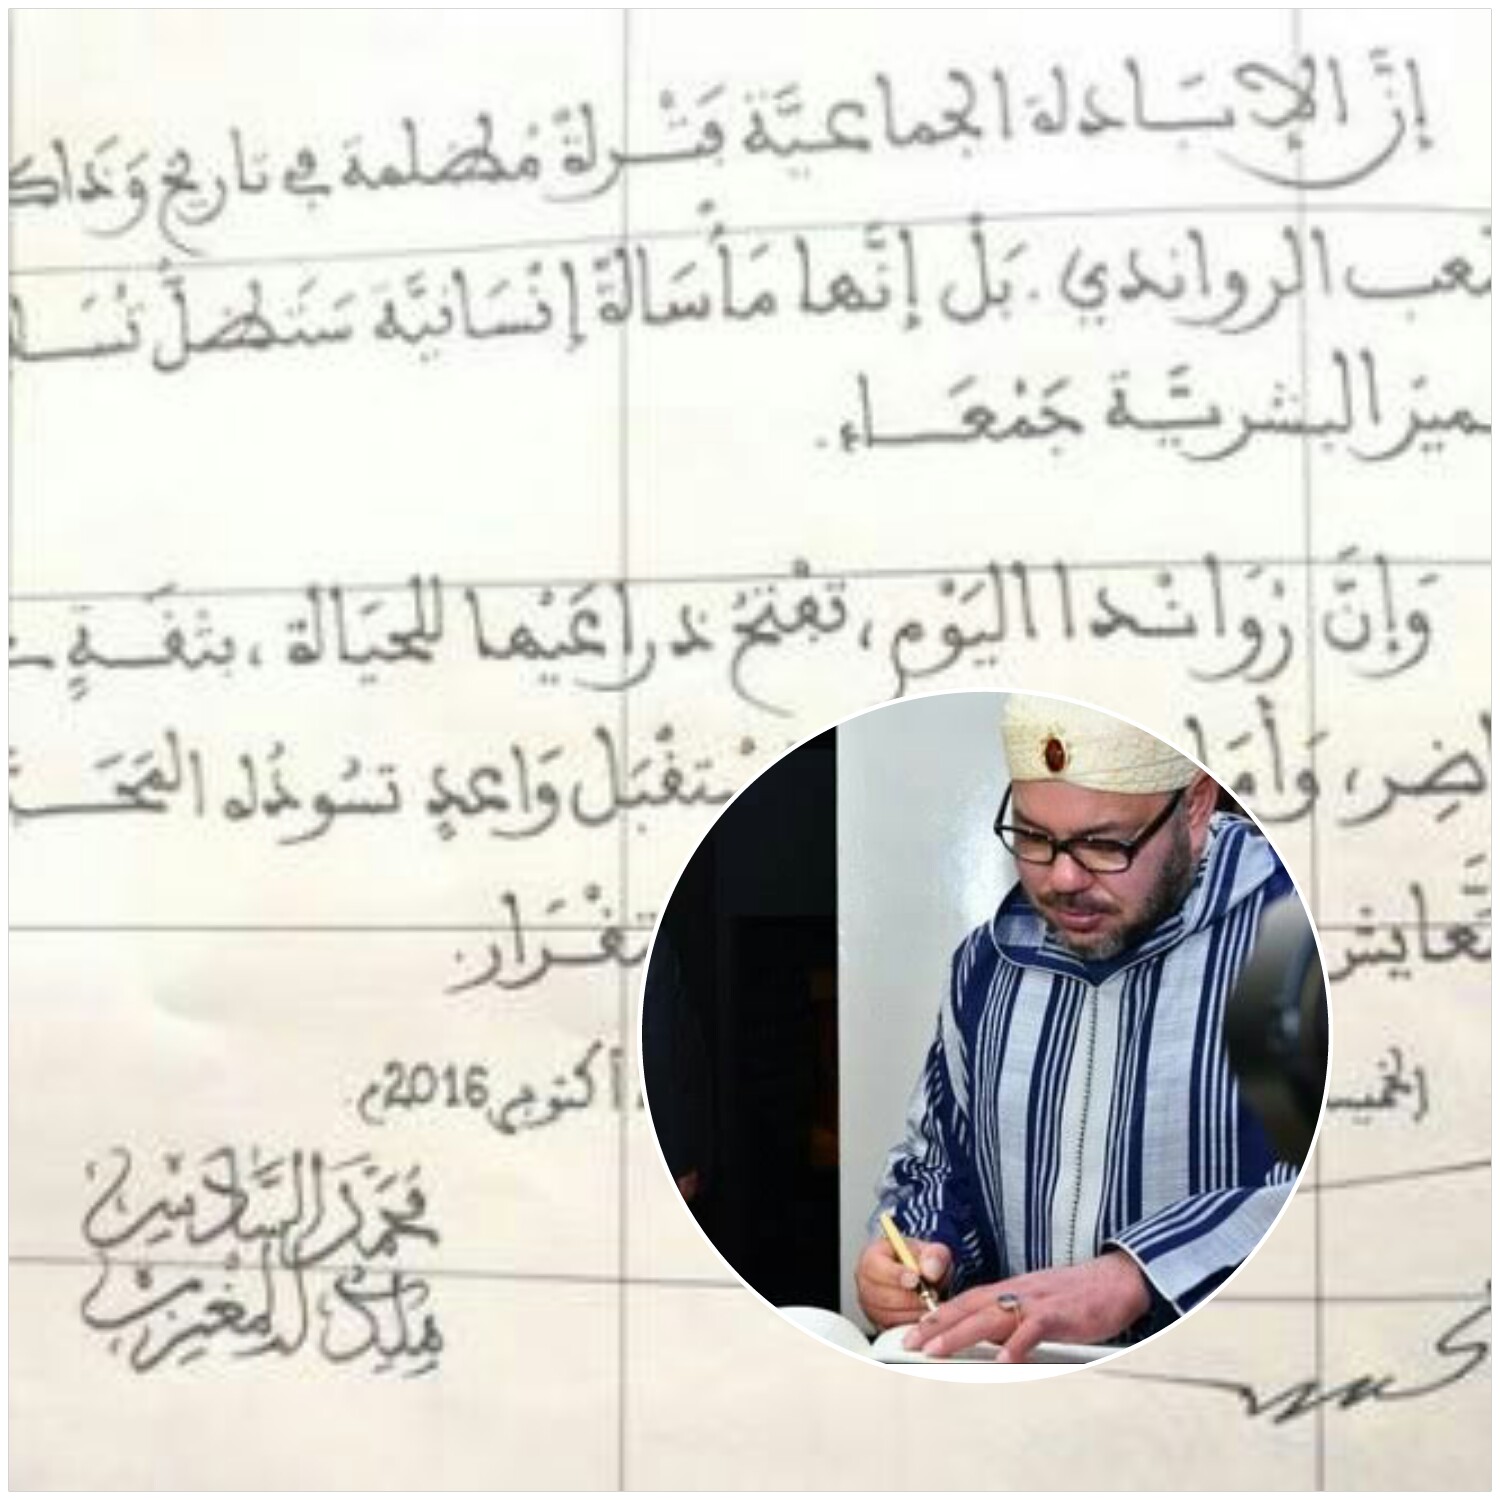 إنَّ الإبَادة الجماعيَّة فَتْرةٌ مُظلمة في تاريخ وَذاك
عب الرواندي. بَلْ إنَّها مَأسَاةٌ إنْسَانيَّة سَتَظلُّ تُسَا
مير البشريَّة جَمْعَاء.
وَإنَّ رُوانْدا اليَوْم، تَفْتَحُ ذراعَيْها للحَيَاة، بثقَةٍ
ضِر، وَأمَل سْتقْبَل وَاعدٍ تسُودُه المَحَ
تَّعايش تقْرَار.
الخميس أكتوبر 2016م
محمد السادس
ملك المغرب